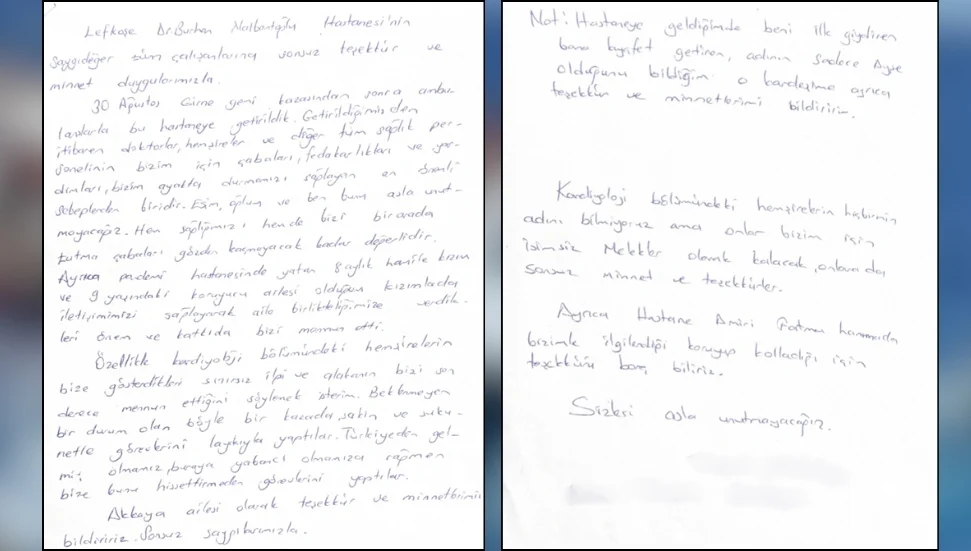 Lefkoşe Dr Burhan Nalbantoğlu Hastanesi'nin
saygıdeğer tüm çalışanlarına sonsuz teşekkür ve
minnet duygularımızla.
30 Ağustos Girne gemi kazasından sonra ambu-
lanslarla bu hastaneye getirildik. Getirildiğimizden
itibaren doktorlar, hemşireler ve diğer tüm sağlık per-
sonelinin bizim için çabaları, fedakarlıkları ve yar-
dımları, bizim ayakta durmamızı sağlayan en önemli
sebeplerden biridir. Eşim, oğlum ve ben bunu asla unut-
mayacağız. Hem sağlığımızı hemde bizi bir arada
tutma çabaları gözden kaçmayacak kadar değerlidir.
Ayrıca pandemi hastanesinde yatan 8 aylık hamile kızım
ve 9 yaşındaki koruyucu ailesi olduğum kızımlada
iletişimimizi sağlayarak aile birlikteliğimize verdik-
leri önem ve katkıda bizi memnun etti.
Özellikle kardiyoloji bölümündeki hemşirelerin
bize gösterdikleri sınırsız ilgi ve alakanın bizi son
derece memnun ettiğini söylemek isterim. Beklenmeyen
bir durum olan böyle bir kazada sakin ve suku-
netle görevlerini layıkıyla yaptılar. Türkiyeden gel-
miş olmamız, buraya yabancı olmamıza rağmen
bize bunu hissettirmeden görevlerini yaptılar.
Akkaya ailesi olarak teşekkür ve minnetlerimizi
bildiririz. Sonsuz saygılarımızla.
Not: Hastaneye geldiğimde beni ilk giydiren
bana kıyafet getiren, adının sadece Ayşe
olduğunu bildiğim o kardeşime ayrıca
teşekkür ve minnetlerimi bildiririm.
Kardiyoloji bölümündeki hemşirelerin hiçbirinin
adını bilmiyoruz ama onlar bizim için
isimsiz Melekler olarak kalacak, onlarada
sonsuz minnet ve teşekkürler.
Ayrıca Hastane Amiri Fatma hanımada
bizimle ilgilendiği koruyup kolladığı için
teşekkürü borç biliriz.
Sizlesi asla unutmayacağız.